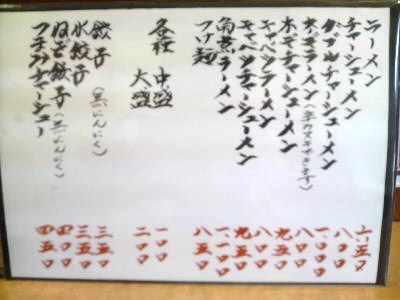 ラーメン 六五〇
チャーシューメン 八〇〇
ダブルチャーシューメン 一〇〇〇
ネギラーメン 八〇〇
ネギチャーシューメン 九五〇
キャベツラーメン 八〇〇
キャベツチャーシューメン 九五〇
角煮ラーメン 一、一〇〇
つけ麺 八五〇
各種 中盛 一〇〇
大盛 二〇〇
餃子(無にんにく) 三五〇
水餃子 三五〇
ねぎ餃子(無にんにく) 四〇〇
つまみチャーシュー 四五〇